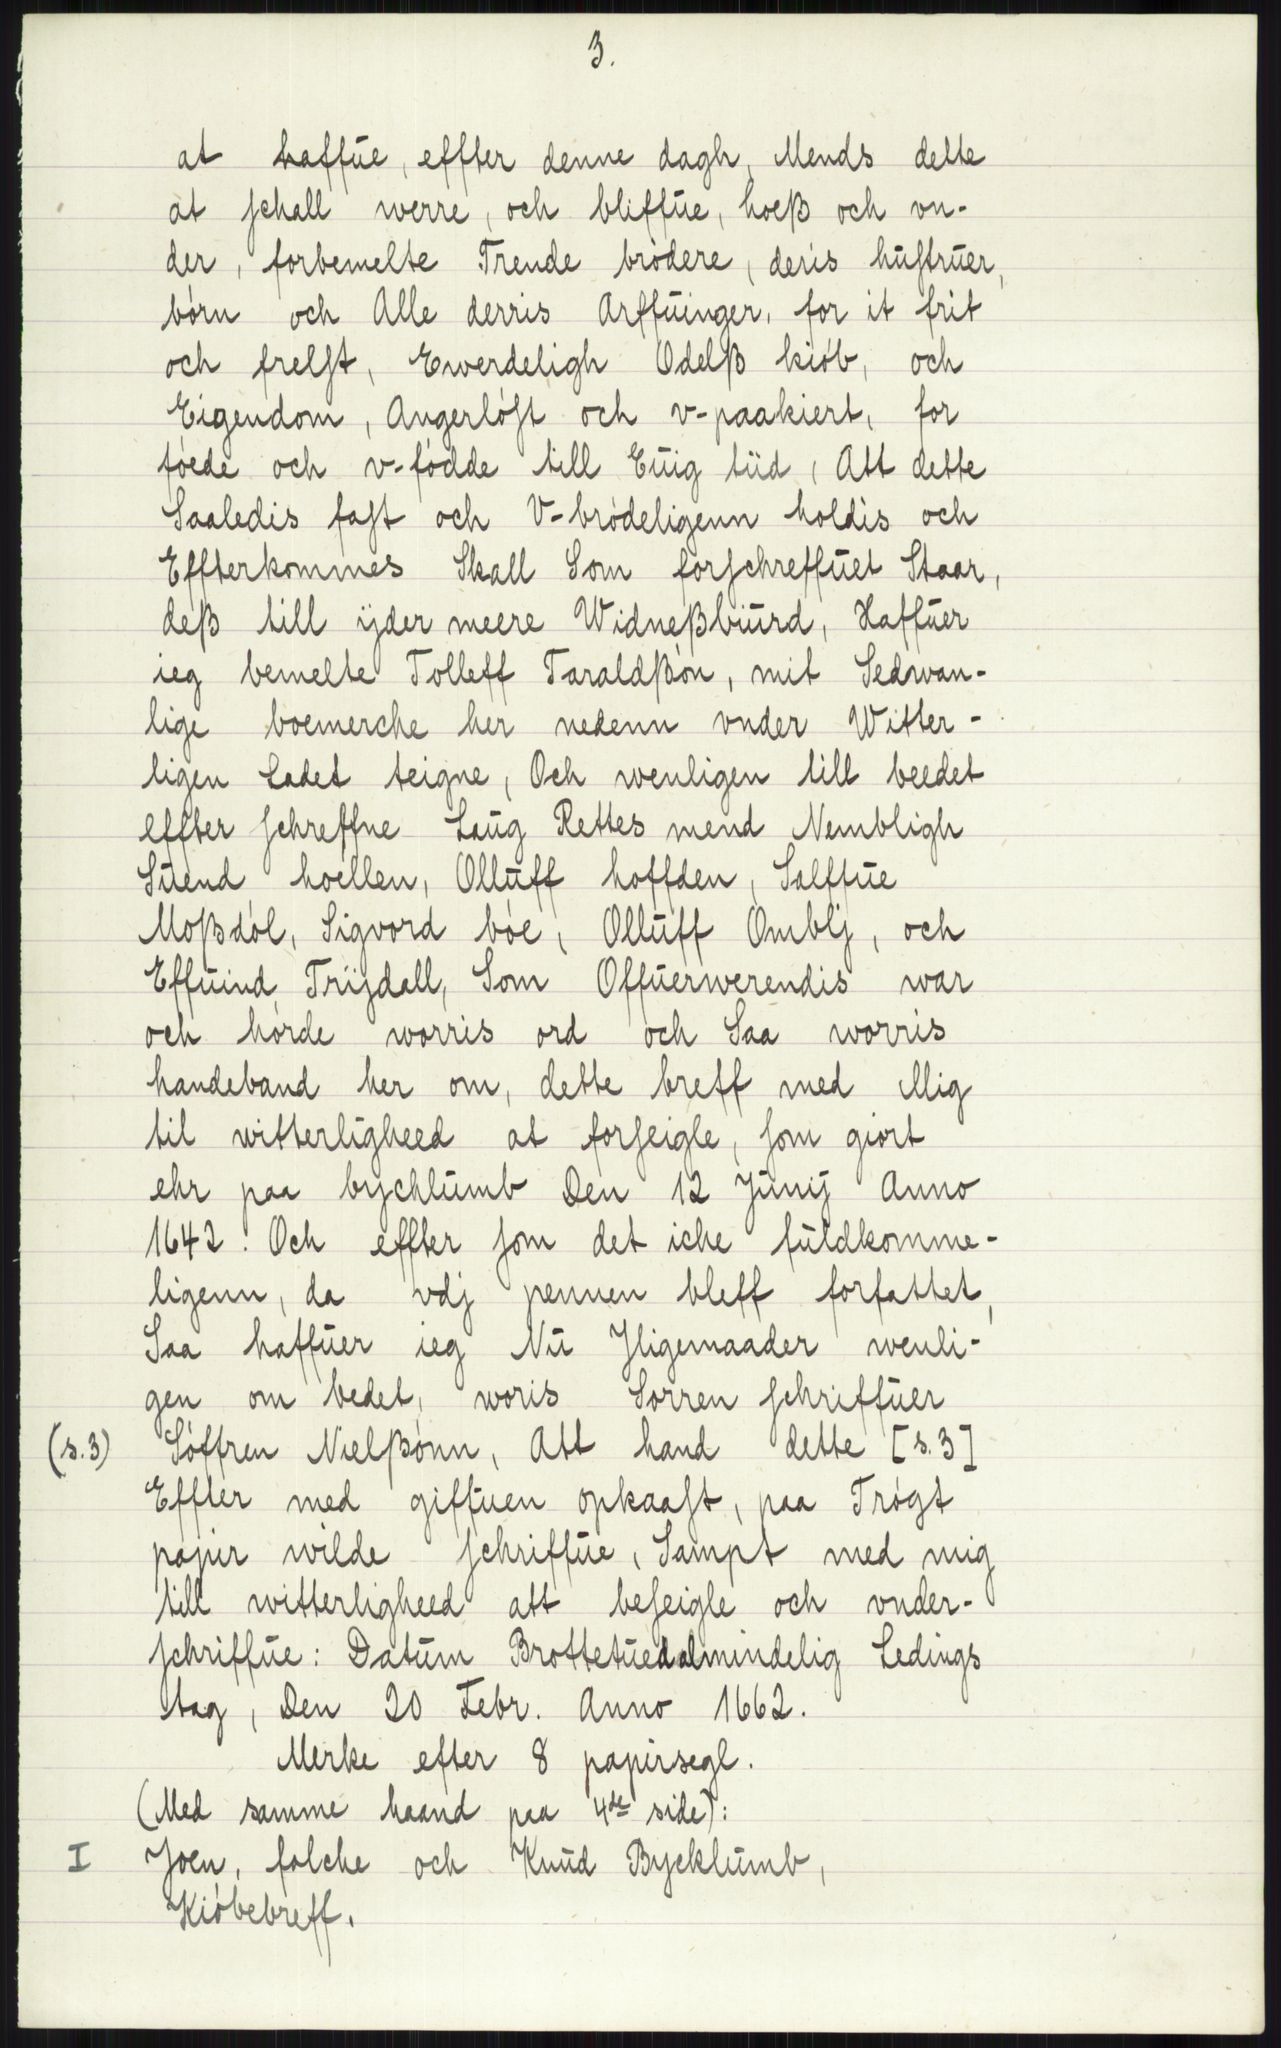 3.
at haffue, effter denne dagh, Mends dette
at schall werre, och bliffue, hoeß och vn-
der, forbemelte Trende brødere, deris hustruer,
børn och Alle derris Arffuinger, for it frit
och frelst, Ewerdeligh Odelß kiøb, och
Eigendom, Angerløst och v-paakiert, for
føede och v-fødde till Euig tiid, Att dette
Saaledis fast och V-brødeligenn holdis och
Effterkommes Skall Som forschreffuet Staar,
deß till ijder meere Widneßbiurd, Haffuer
ieg bemelte Tolleff Taraldßøn, mit Sedwan-
lige boemerche her nedenn vnder Witter-
ligen Ladet teigne, Och wenligen till beedet
effter schreffne Laug Rettes mend Nembligh
Suend hoellen, Olluff hoffden, Salffue
Moßdøl, Sigvord bøe, Olluff Omblj, och
Effuind Trijdall, Som Offuerwerendis war
och hørde worris ord och Saa worris
handeband her om, dette breff med Mig
til witterligheed at forseigle, som giort
ehr paa bychlumb Den 12 Junij Anno
1642. Och effter som det iche fuldkomme-
ligenn, da vdj pennen bleff forfattet,
Saa haffuer ieg Nu Jligemaader wenli-
gen om bedet, woris Sorren schriffuer
(s.3) Søffren Nielßønn, Att hand dette [s.3]
Effter med giffuen opkaast, paa Trøgt
papir wilde schriffue, Sampt med mig
till witterligheed att beseigle och vnder-
schriffue: Datum Brottetuedalmindelig Ledings
tag, Den 20 Febr. Anno 1662.
Merke efter 8 papirsegl.
(Med samme haand paa 4de side):
I Joen, folche och Knud Bycklumb,
Kiøbebreff.